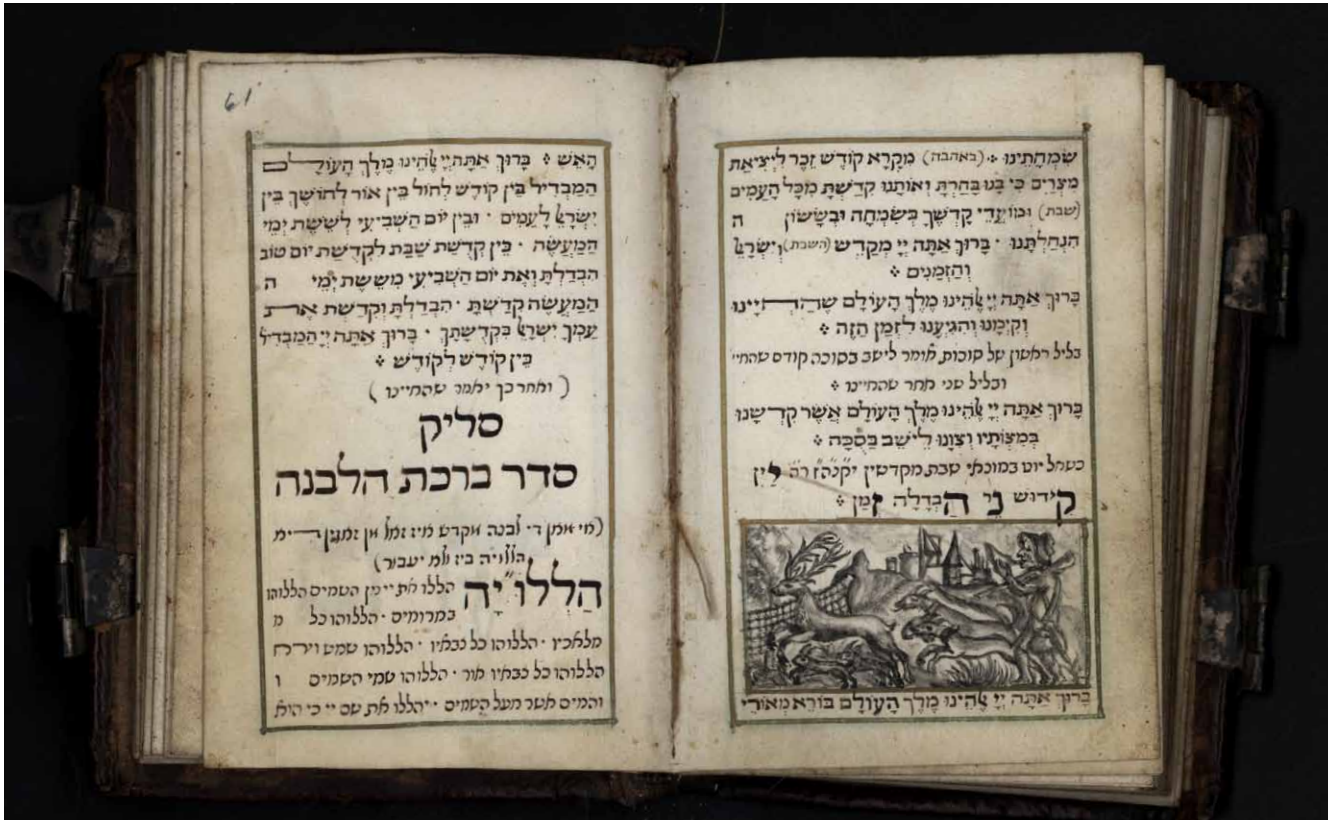 שִׂמְחָתֵינוּ (באהבה) מִקְרָא קוֹדֶשׁ זֵכֶר לִיצִיאַת
מִצְרַיִם כִּי בָנוּ בָחַרְתָּ וְאוֹתָנוּ קִדַּשְׁתָּ מִכָּל הָעַמִּים
(שבת) וּמוֹעֲדֵי קָדְשֶׁךָ בְּשִׂמְחָה וּבְשָׂשׂוֹן ה
הִנְחַלְתָּנוּ · בָּרוּךְ אַתָּה יְיָ מְקַדֵּשׁ (השבת) וְיִשְׂרָאֵל
וְהַזְּמַנִּים
בָּרוּךְ אַתָּה יְיָ אֱלֹהֵינוּ מֶלֶךְ הָעוֹלָם שֶׁהֶחֱיָינוּ
וְקִיְּמָנוּ וְהִגִּיעָנוּ לִזְמַן הַזֶּה
בליל ראשון של סוכות אומר לישב בסוכה קודם שהחיי
ובליל שני אחר שהחיינו
בָּרוּךְ אַתָּה יְיָ אֱלֹהֵינוּ מֶלֶךְ הָעוֹלָם אֲשֶׁר קִדְּשָׁנוּ
בְּמִצְוֹתָיו וְצִוָּנוּ לֵישֵׁב בַּסֻּכָּה
כשחל יוט במוצאי שבת מקדשין יקנה״ז ר״ה יַיִן
קִידוּשׁ נֵר הַבְדָּלָה זְמַן
בָּרוּךְ אַתָּה יְיָ אֱלֹהֵינוּ מֶלֶךְ הָעוֹלָם בּוֹרֵא מְאוֹרֵי
61
הָאֵשׁ בָּרוּךְ אַתָּה יְיָ אֱלֹהֵינוּ מֶלֶךְ הָעוֹלָם
הַמַּבְדִּיל בֵּין קוֹדֶשׁ לְחוֹל בֵּין אוֹר לְחוֹשֶׁךְ בֵּין
יִשְׂרָאֵל לָעַמִּים · וּבֵין יוֹם הַשְּׁבִיעִי לְשֵׁשֶׁת יְמֵי
הַמַּעֲשֶׂה · בֵּין קְדֻשַּׁת שַׁבָּת לִקְדֻשַּׁת יוֹם טוֹב
הִבְדַּלְתָּ וְאֶת יוֹם הַשְּׁבִיעִי מִשֵּׁשֶׁת יְמֵי ה
הַמַּעֲשֶׂה קִדַּשְׁתָּ · הִבְדַּלְתָּ וְקִדַּשְׁתָּ אֶת
עַמְּךָ יִשְׂרָאֵל בִּקְדֻשָּׁתֶךָ · בָּרוּךְ אַתָּה יְיָ הַמַּבְדִּיל
בֵּין קוֹדֶשׁ לְקוֹדֶשׁ
(ואחר כך יאמר שהחיינו)
סליק
סדר ברכת הלבנה
לבנה
הַלְלוּ״יָהּ הללו את יי מן השמים הללוהו
במרומים · הללוהו כל מ
מלאכיו · הללוהו כל צבאיו · הללוהו שמש וירח
הללוהו כל כוכבי אור · הללוהו שמי השמים ו
והמים אשר מעל השמים · יהללו את שם יי כי הוא